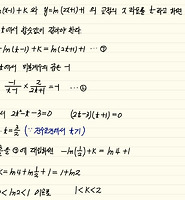 n(x-1)+K 와 y=ln(2x+1)+1 의 교점의 x 좌표를 t라고 하면
t에서 함숫값이 같아야 한다
-ln(t-1)+K = ln(2t+1)+1 … ①
t에서 기울기의 곱은 -1
-\frac{1}{x-1} × \frac{2}{2t+1} = -1 … ②
서 2t²-t-3=0 (2t-3)(t+1)=0
t=\frac{3}{2} (∵ t>1)
를 ①에 대입하면 -ln(\frac{1}{2})+K = ln4+1
K = ln4 + ln\frac{1}{2} + 1 = 1+ln2
< ln2 < 1 이므로 1<K<2